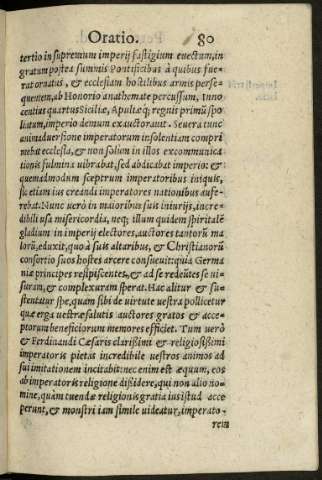 Oratio. 80
tertio in supremum imperij fastigium euectum, in
gratum postea summis Pontificibus à quibus fue=
rat ornatus, & ecclesiam hostilibus armis perse=
quentem, ab Honorio anathemate percussum, Inno
centius quartus Siciliæ, Apuliæq; regnis primũ spo
liatum, imperio demum exauctorauit. Seuera tunc
animaduersione imperatorum insolentiam compri
mebat ecclesia, & non solum in illos excommunica
tionis fulmina uibrabat, sed abdicabat imperio: &
quemadmodum sceptrum imperatoribus iniquis,
sic etiam ius creandi imperatores nationibus aufe=
rebat. Nunc uerò in maioribus suis iniurijs, incre=
dibili usa misericordia, neq; illum quidem spiritalẽ
gladium in imperij electores, auctores tantorũ ma
lorũ, eduxit, quo à suis altaribus, & Christianorũ
consortio suos hostes arcere consueuit: quia Germa
niæ principes resipiscentes, & ad se redeũtes se ui=
suram, & complexuram sperat. Hac alitur & su=
stentatur spe, quam sibi de uirtute uestra pollicetur
quæ erga uestræ salutis auctores gratos & acce=
ptorum beneficiorum memores efficiet. Tum uerò
& Ferdinandi Cæsaris clarißimi & religiosißimi
imperatoris pietas incredibile uestros animos ad
sui imitationem incitabit: nec enim est æquum, eos
ab imperatoris religione dißidere, qui non alio no=
mine, quàm tuendæ religionis gratia ius istud acce
perunt, & monstri iam simile uideatur, imperato=
rem